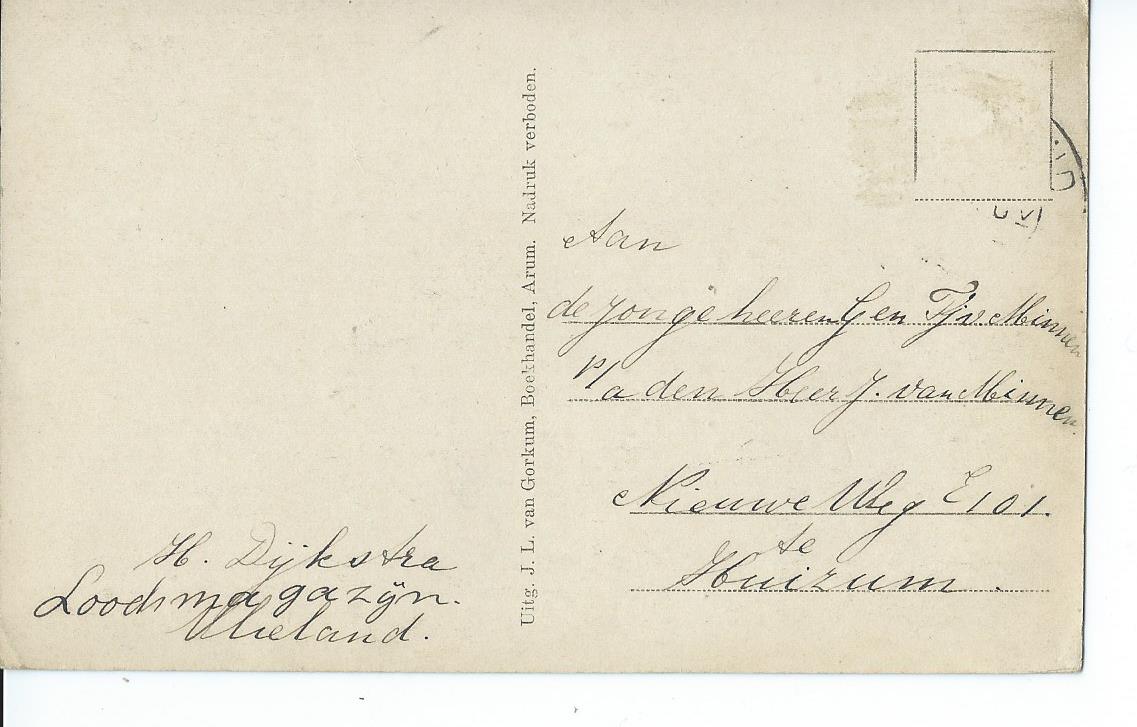 Uitg. J. L. van Gorkum, Boekhandel, Arum. Nadruk verboden.
Aan
de jonge heeren G en Tj v. Minnen
p/a den Heer J. van Minnen.
Nieuwe Weg E 101.
te
Huizum.
H. Dijkstra
Loodsmagazijn.
Vlieland.